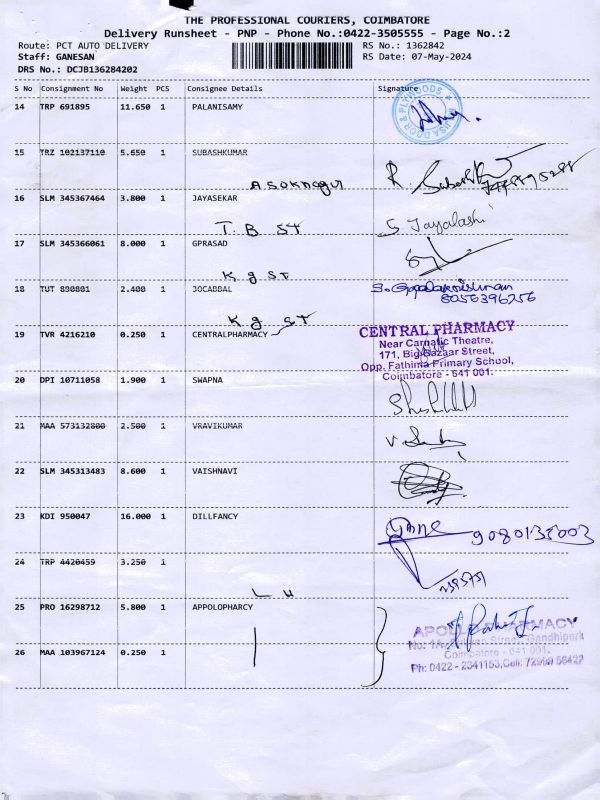 THE PROFESSIONAL COURIERS, COIMBATORE
Delivery Runsheet - PNP - Phone No.:0422-3505555 - Page No.:2
Route: PCT AUTO DELIVERY
RS No.: 1362842
Staff: GANESAN
RS Date: 07-May-2024
DRS No.: DCJB136284202
S No Consignment No Weight PCS Consignee Details Signature
14 TRP 691895 11.650 1 PALANISAMY
15 TRZ 102137110 5.650 1 SUBASHKUMAR
16 SLM 345367464 3.800 1 JAYASEKAR
T.B ST
S. Jayalashi
17 SLM 345366061 8.000 1 GPRASAD
K g ST
18 TUT 890801 2.400 1 JOCABBAL
S. Gopalakrishnan
8056396256
K g ST
19 TVR 4216210 0.250 1 CENTRALPHARMACY
CENTRAL PHARMACY
Near Carnatic Theatre,
171, Big Bazaar Street,
Opp. Fathima Primary School,
Coimbatore - 641 001.
20 DPI 10711058 1.900 1 SWAPNA
21 MAA 573132800 2.500 1 VRAVIKUMAR
22 SLM 345313483 8.600 1 VAISHNAVI
23 KDI 950047 16.000 1 DILLFANCY
9080135003
24 TRP 4420459 3.250 1
25 PRO 16298712 5.800 1 APPOLOPHARCY
APOLLO PHARMACY
Street, Gandhipark
Coimbatore - 641 001.
Ph: 0422 - 2341153, Cell:
26 MAA 103967124 0.250 1